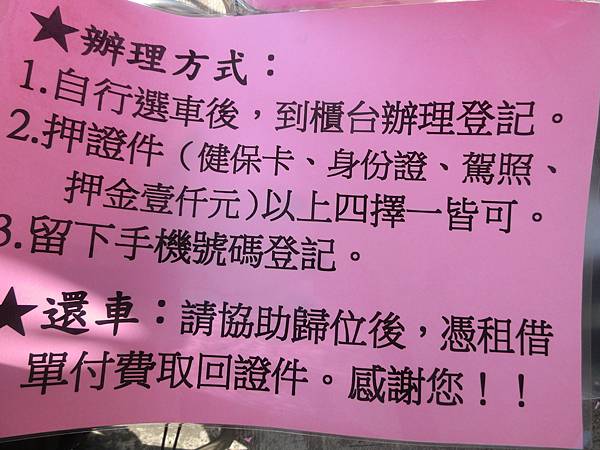 ★辦理方式：
1.自行選車後，到櫃台辦理登記。
2.押證件（健保卡、身份證、駕照、
押金壹仟元)以上四擇一皆可。
3.留下手機號碼登記。
★還車：請協助歸位後，憑租借
單付費取回證件。感謝您！！